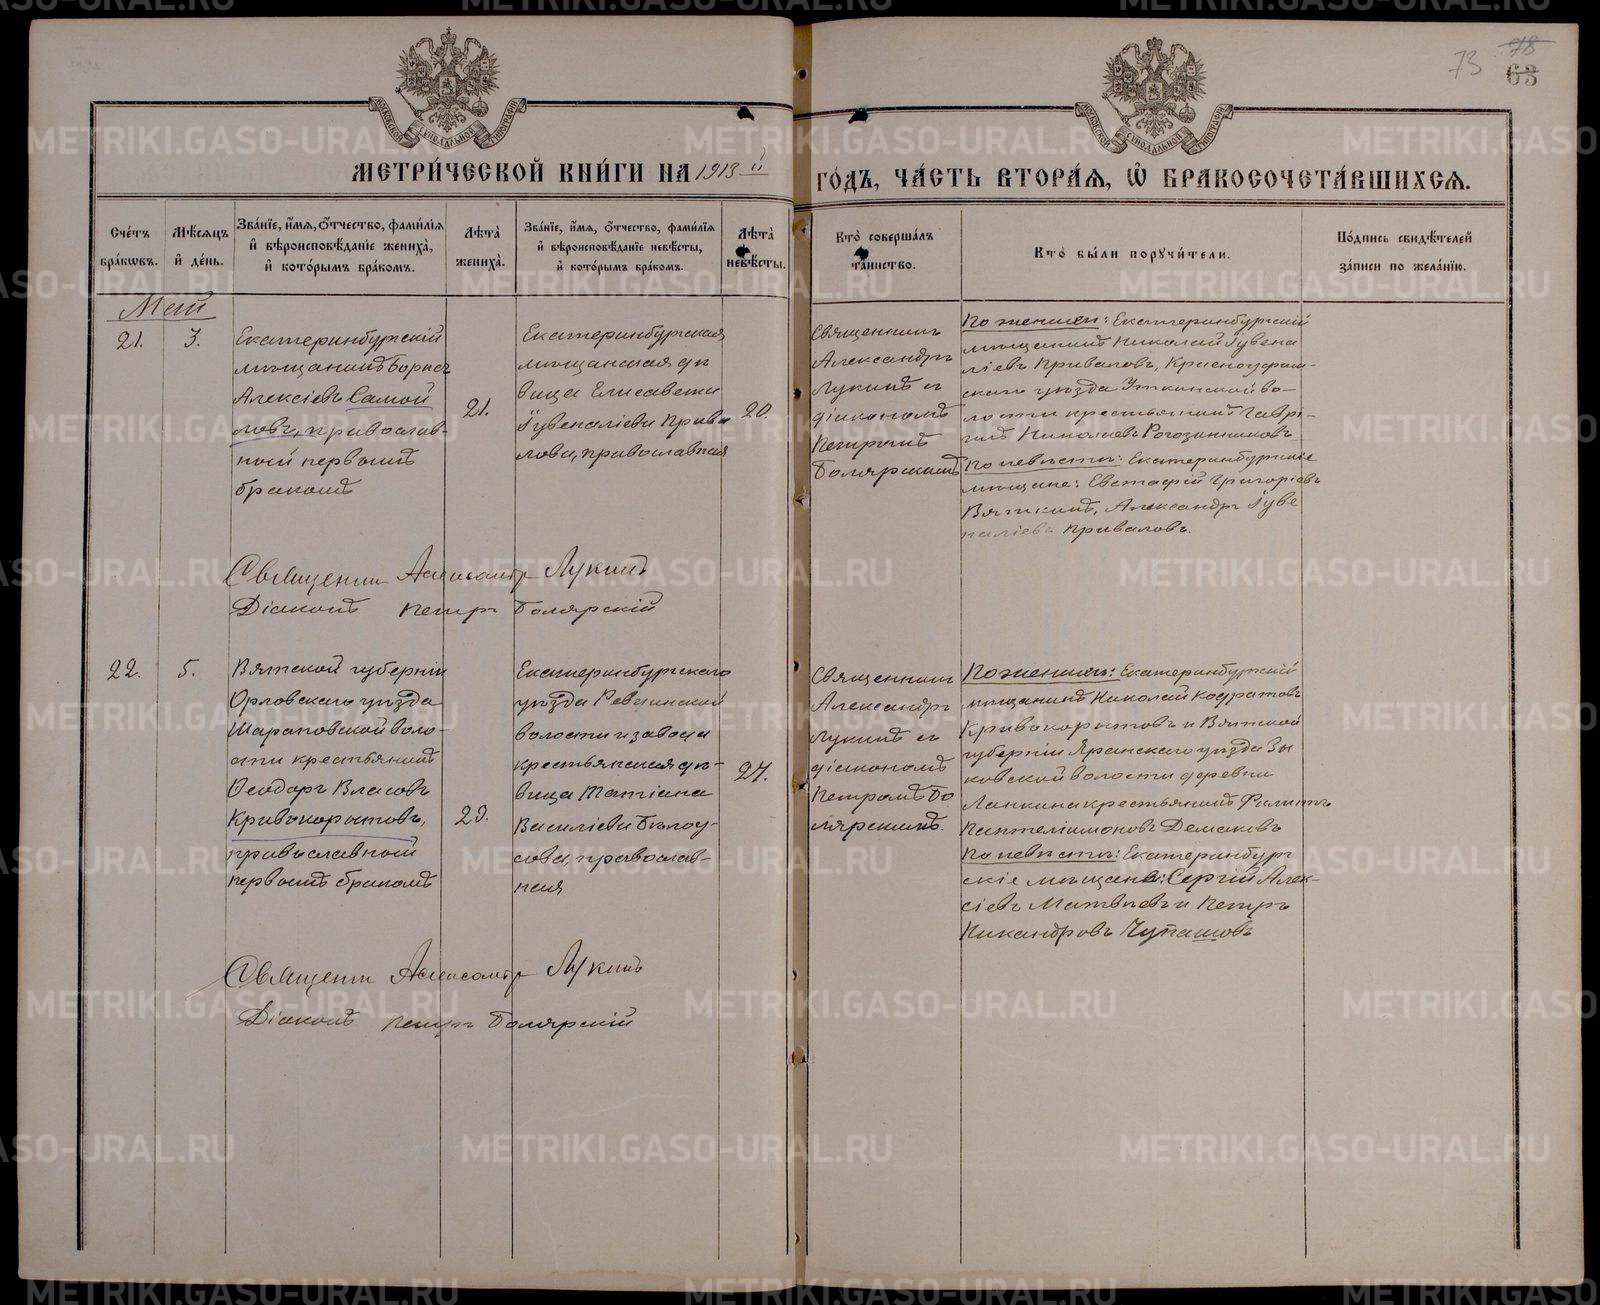 73
78
63
МОСКОВСКОЙ СѴНОДАЛЬНОЙ ТИПОГРАФІИ
МОСКОВСКОЙ СѴНОДАЛЬНОЙ ТИПОГРАФІИ
МЕТРИ́ЧЕСКОЙ КНИ́ГИ НА 1913 й
ГО́ДЪ, ЧА́СТЬ ВТОРА́Я, Ѽ БРАКОСОЧЕТА́ВШИХСЯ.
Сче́тъ
бра́ковъ.
Мѣ́сяцъ
и҆ де́нь.
Зва́нїе, и҆́мя, ѻ҆́тчество, фами́лїя
и҆ вѣроисповѣ́данїе жениха̀,
и҆ кото́рымъ бра́комъ.
Лѣ́та
жениха̀.
Зва́нїе, и҆́мя, ѻ҆́тчество, фами́лїя
и҆ вѣроисповѣ́данїе невѣ́сты,
и҆ кото́рымъ бра́комъ.
Лѣ́та
невѣ́сты.
Кто̀ соверша́лъ
та́инство.
Кто̀ бы́ли поручи́тели.
По́дпись свидѣ́телей
за́писи по жела́нїю.
Май
21.
3.
Екатеринбургскій
мѣщанинъ Борисъ
Алексѣевъ Самой
ловъ, православ-
ный первымъ
бракомъ
21.
Екатеринбургская
мѣщанская дѣ
вица Елисавета
Іувеналіева Прива
лова, православная
20.
Священникъ
Александръ
Лукинъ съ
діакономъ
Петромъ
Болярскимъ
По женихѣ: Екатеринбургскій
мѣщанинъ Николай Іувена
ліевъ Приваловъ, Красноуфим-
скаго уѣзда Уткинской во-
лости крестьянинъ Гаврі-
илъ Николаевъ Рогозинниковъ
По невѣстѣ: Екатеринбургскіе
мѣщане: Евстафій Григоріевъ
Вяткинъ, Александръ Іуве
наліевъ Приваловъ.
Священникъ Александръ Лукинъ
Діаконъ Петръ Болярскій
22.
5.
Вятской губерніи
Орловскаго уѣзда
Шараповской воло-
сти крестьянинъ
Ѳеодоръ Власовъ
Кривокорытовъ,
православный
первымъ бракомъ
29.
Екатеринбургскаго
уѣзда Ревдинской
волости и завода
крестьянская дѣ-
вица Татіана
Василіева Бѣлоу-
сова, православ-
ная
24.
Священникъ
Александръ
Лукинъ съ
діакономъ
Петромъ Бо
лярскимъ.
По женихѣ: Екатеринбургскій
мѣщанинъ Николай Кодратовъ
Кривокорытовъ и Вятской
губерніи Яранскаго уѣзда Зы
ковской волости деревни
Ланкина крестьянинъ Филиппъ
Пантелиимоновъ Демаковъ
По невѣстѣ: Екатеринбург
скіе мѣщане: Сергій Алек-
сіевъ Матвѣевъ и Петръ
Никандровъ Чупашовъ
Священникъ Александръ Лукинъ
Діаконъ Петръ Болярскій
METRIKI.GASO-URAL.RU